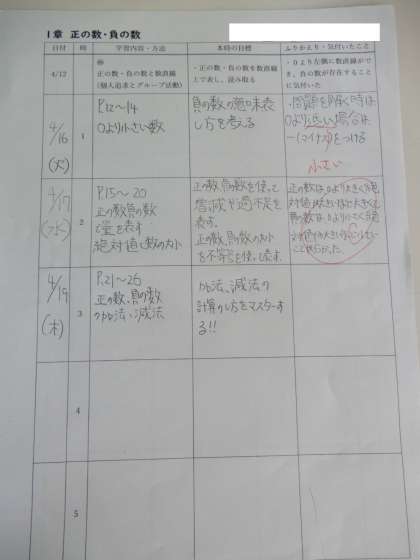 1章 正の数・負の数
日付
時
学習内容・方法
本時の目標
ふりかえり・気付いたこと
4/12
例
正の数・負の数と数直線
(個人追求とグループ活動)
・正の数・負の数を数直線
上で表し、読み取る
・0より左側に数直線がで
き、負の数が存在すること
に気付いた
4/16
(火)
1
P.12〜14
0より小さい数
負の数の意味表
し方を考える
・問題を解く時は
0より低い場合は
−(マイナス)をつける
小さい
4/17
(水)
2
P.15〜20
正の数負の数
で量を表す
絶対値と数の大小
正の数、負の数を使って
増減や過不足を
表す。
正の数、負の数の大小
を不等号を使って表す。
正の数は、0より大きく絶
対値が大きいほど大きくて
負の数は0より小さく絶
対値が大きいほど小さい
ことが分かった。
4/19
(木)
3
P.21〜26
正の数、負の数
の加法、減法
加法、減法の
計算のし方をマスターす
る!!
4
5